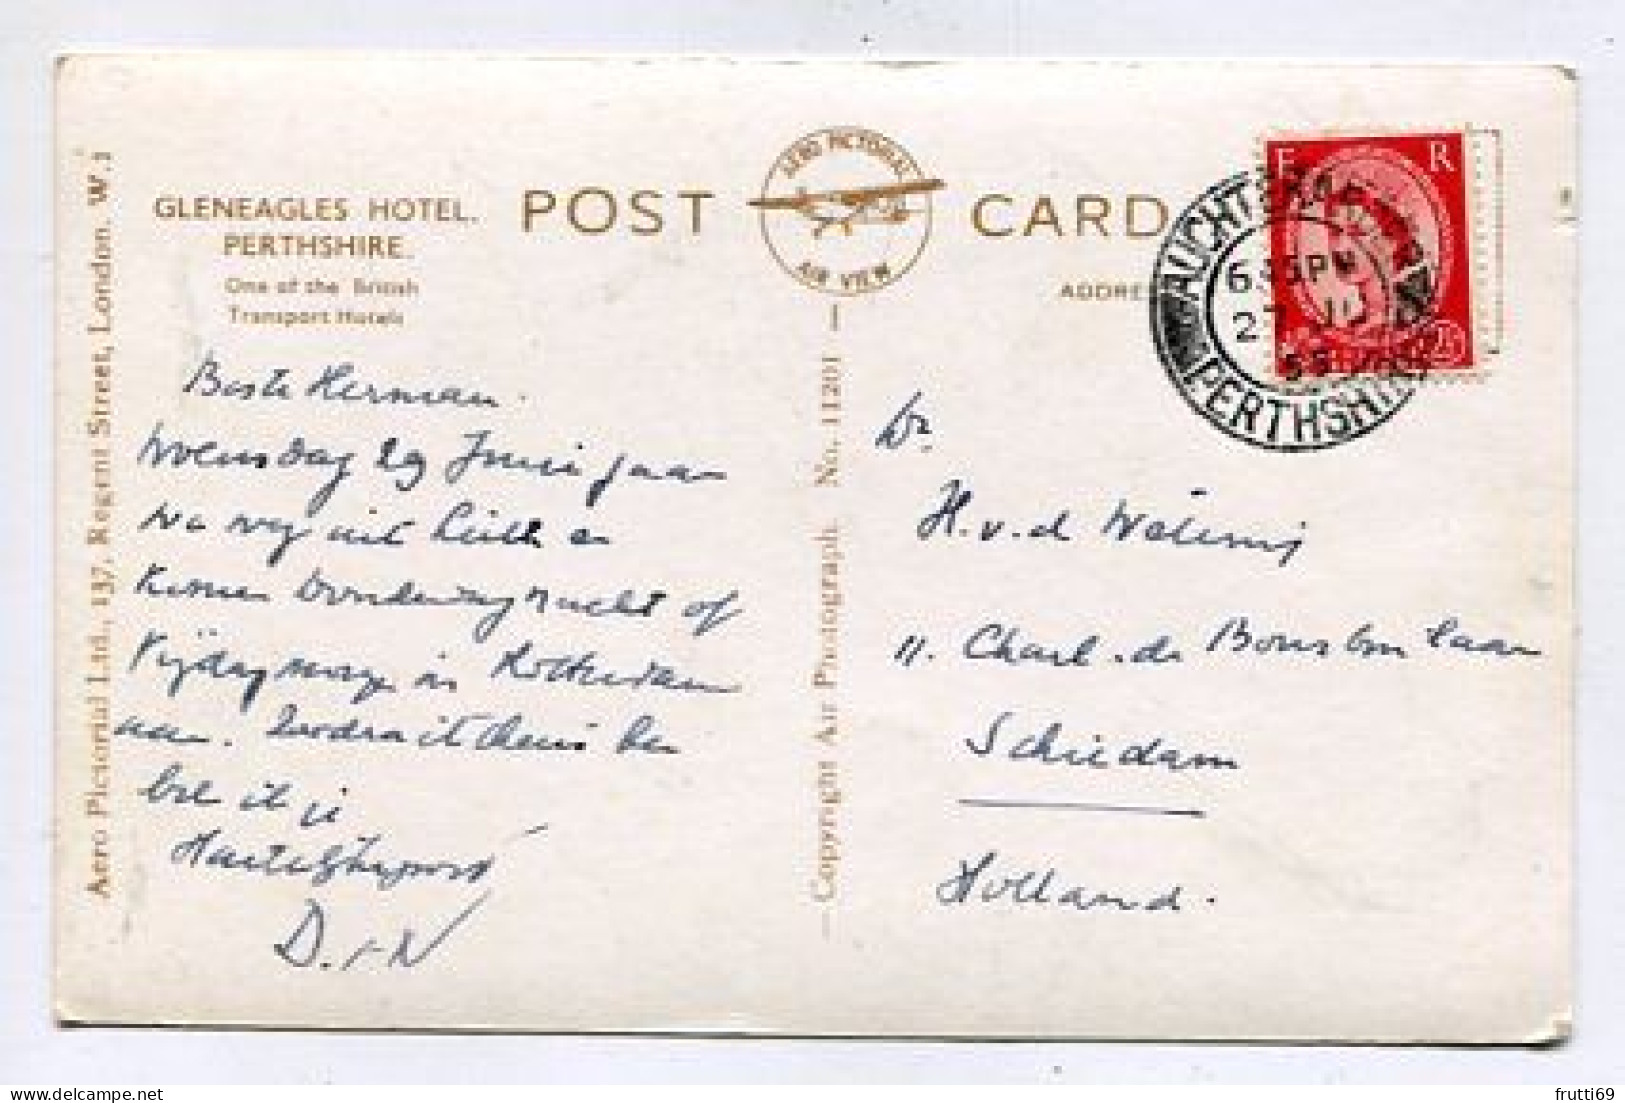 Aero Pictorial Ltd., 137, Regent Street, London, W.1
GLENEAGLES HOTEL.
PERTHSHIRE.
One of the British
Transport Hotels
POST CARD
AERO PICTORIAL
AIR VIEW
ADDRE
AUCHTERARDER
6.45PM
27 JU
55
PERTHSHIRE
E R
2½
Beste Herman.
Woensdag 29 Juni gaan
we weg uit Leith en
komen donderdagnacht of
Vrijdagmorgen in Rotterdam
aan. Zodra ik thuis ben
bel ik je
Hartelijk gegroet
D. + N
Copyright Air Photograph. No. 11201
Dr.
H. v. d. Watering
11. Charl. de Bourbonlaan
Schiedam
Holland.
frutti69